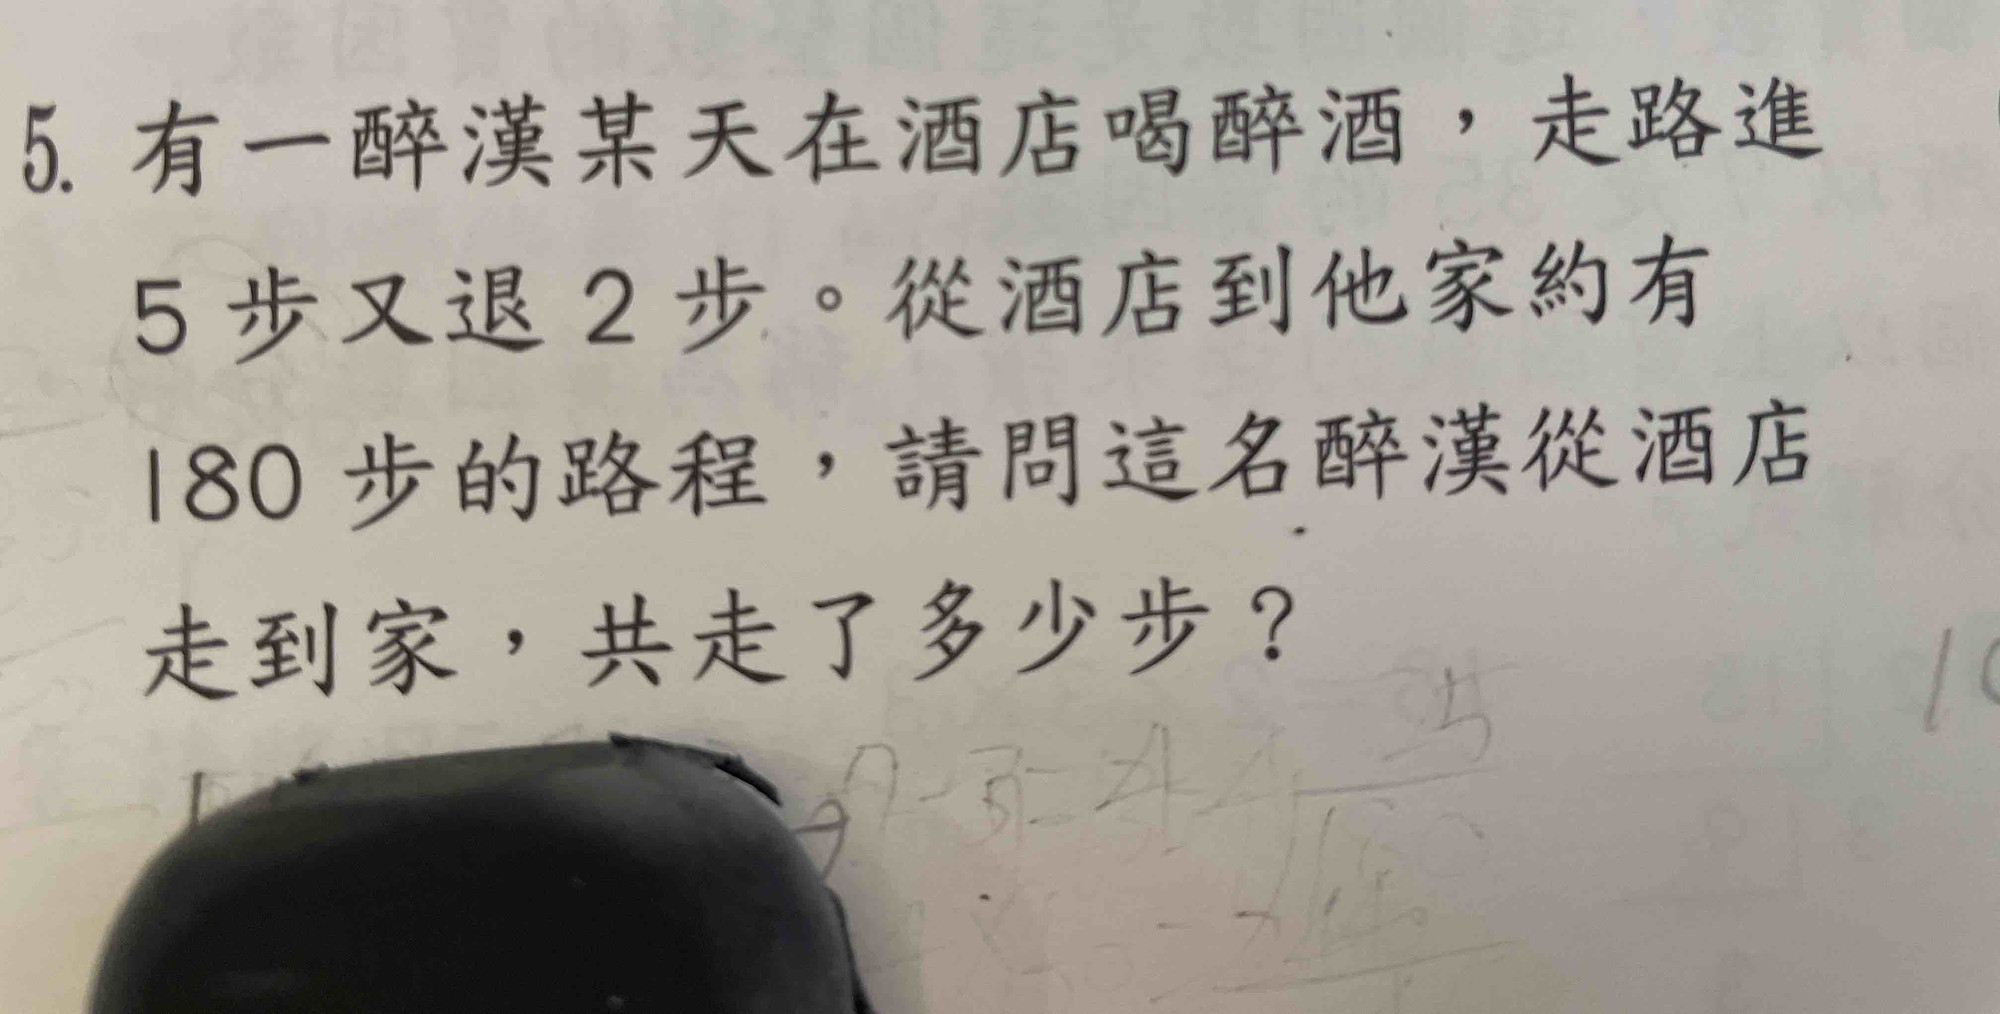 5. 有一醉漢某天在酒店喝醉酒，走路進
5 步又退 2 步。從酒店到他家約有
180 步的路程，請問這名醉漢從酒店
走到家，共走了多少步？